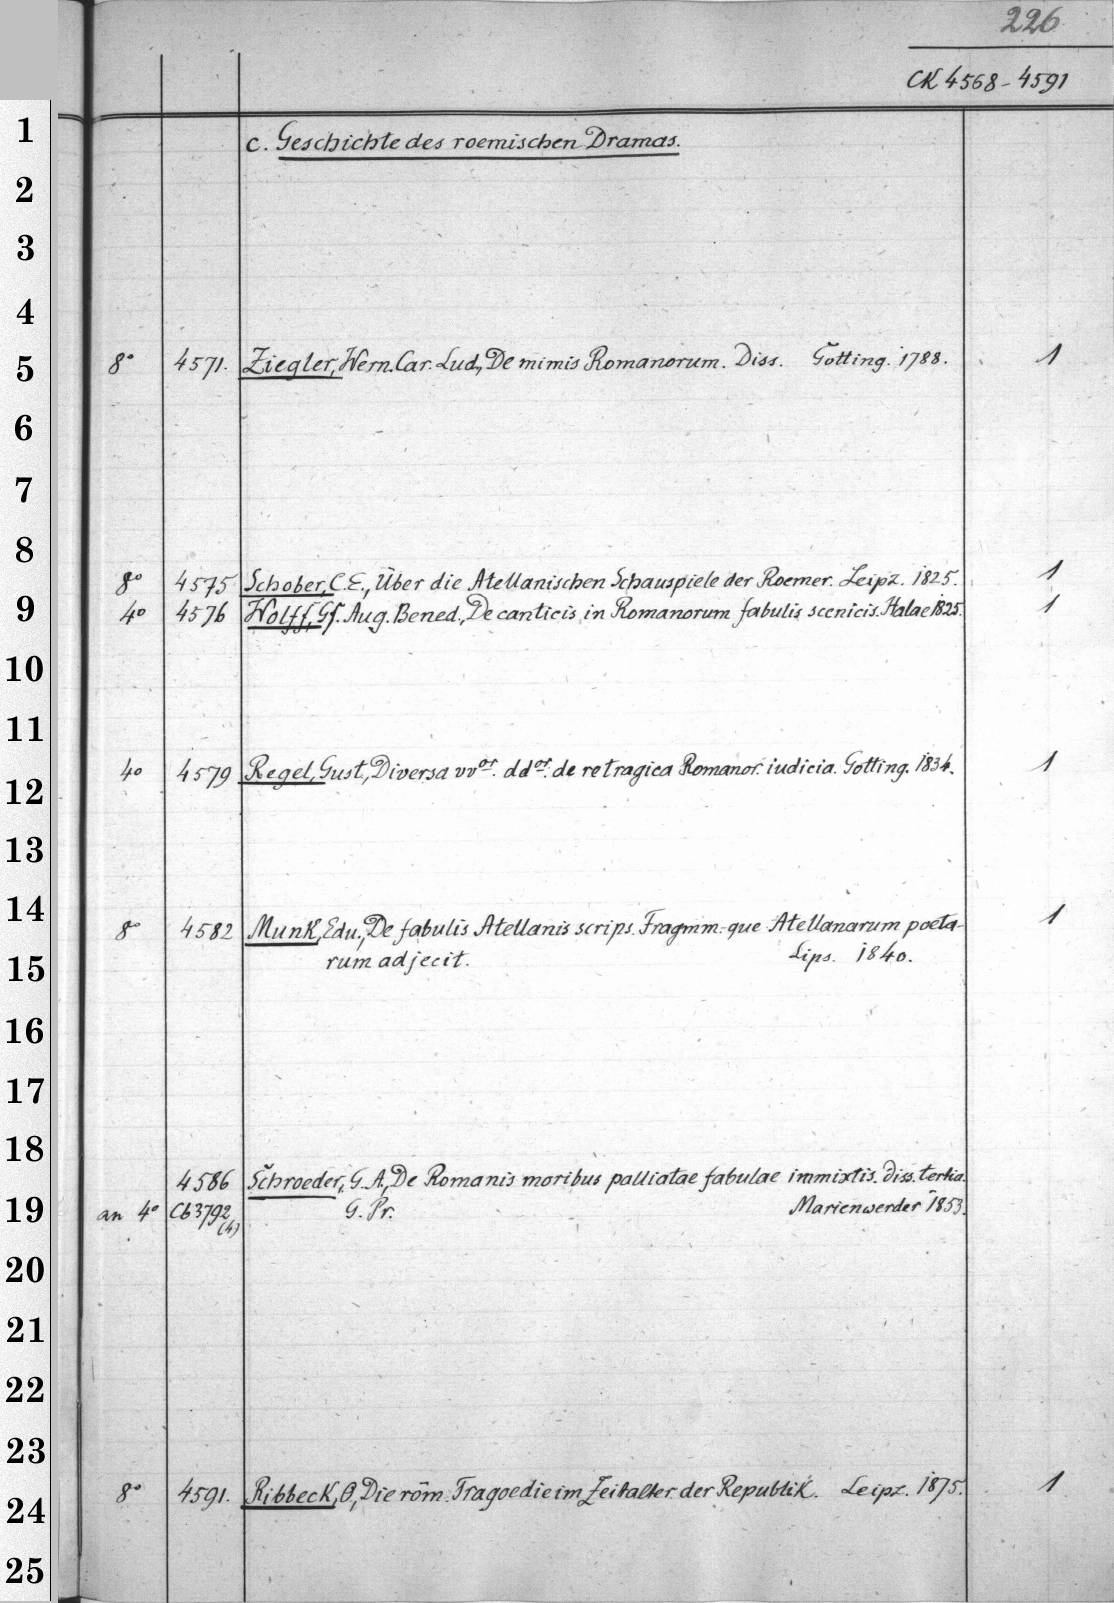 226
CK 4568-4591
1
c. Geschichte des roemischen Dramas.
2
3
4
5
8° 4571. Ziegler, Wern. Car. Lud., De mimis Romanorum. Diss. Götting. 1788. 1
6
7
8
8° 4575 Schober, C. E., Über die Atellanischen Schauspiele der Roemer. Leipz. 1825. 1
9
4° 4576 Wolff, Gf. Aug. Bened., De canticis in Romanorum fabulis scenicis. Halae 1825. 1
10
11
4° 4579 Regel, Gust., Diversa vvor. ddor. de re tragica Romanor. iudicia. Gotting. 1834. 1
12
13
14
8° 4582 Munk, Edu., De fabulis Atellanis scrips. Fragmm.-que Atellanarum poeta- 1
15
rum adjecit. Lips. 1840.
16
17
18
4586 Schroeder, G. A., De Romanis moribus palliatae fabulae immixtis. diss. tertia.
19
an 4° Cb 3792 G. Pr. Marienwerder 1853.
(4)
20
21
22
23
8° 4591. Ribbeck, O., Die röm. Tragoedie im Zeitalter der Republik. Leipz. 1875. 1
24
25